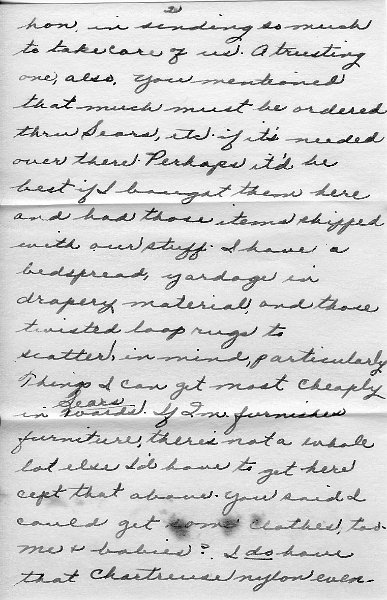 2
hon, in sending so much
to take care of us. A trusting
one, also. You mentioned
that much must be ordered
thru Sears, etc. if it's needed
over there. Perhaps it'd be
best if I bought them here
and had those items shipped
with our stuff. I have a
bedspread, yardage in
drapery material, and those
twisted loop rugs to
scatter, in mind, particularly
Things I can get most cheaply
Sears
in Wards. If I'm furnished
furniture, there's not a whole
lot else I'd have to get here
cept that above. You said I
could get some clothes, too-
me & babies? I do have
that Chartreuse nylon even-